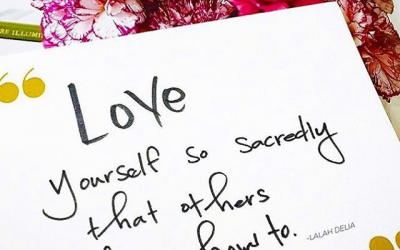 RE ILLUMI
“
Love
Yourself so sacredly
that others
how to.
-LALAH DELIA